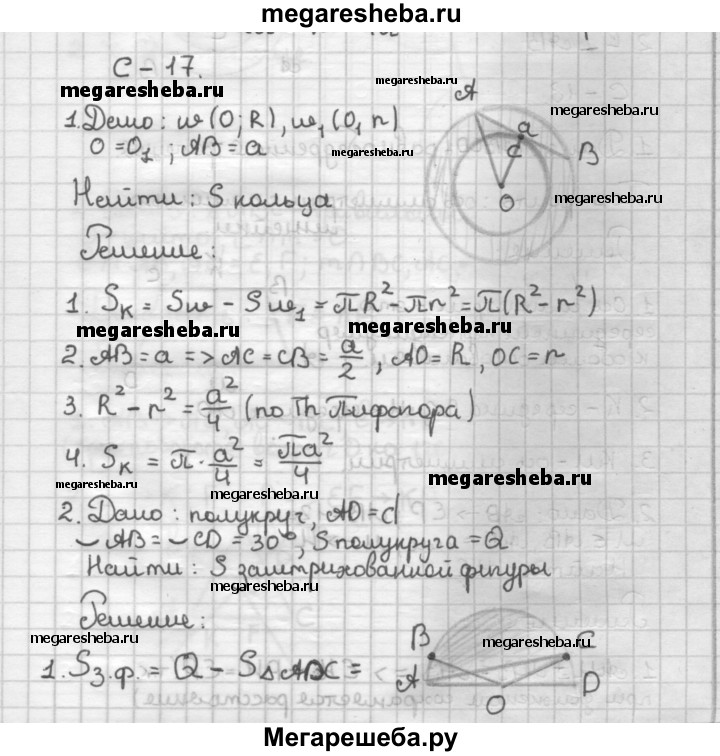 megaresheba.ru
С - 17.
megaresheba.ru
megaresheba.ru
1. Дано: w (O; R), w₁ (O₁ r)
O = O₁ ; AB = a
A
a
C
B
O
megaresheba.ru
Найти: S кольца
Решение:
1. Sк = Sw - Sw₁ = πR² - πr² = π(R² - r²)
megaresheba.ru
megaresheba.ru
2. AB = a => AC = CB = a/2 , AO = R , OC = r
3. R² - r² = a²/4 (по Th Пифагора)
4. Sк = π · a²/4 = πa²/4
megaresheba.ru
megaresheba.ru
megaresheba.ru
2. Дано: полукруг, AD = d
◡ AB = ◡ CD = 30°, S полукруга = Q
Найти: S заштрихованной фигуры
megaresheba.ru
Решение:
megaresheba.ru
megaresheba.ru
1. Sз.ф. = Q - S
B
C
A
D
O
Мегарешеба.ру